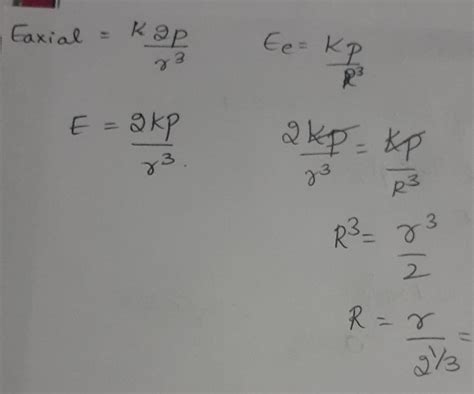 Eaxial = K 2p/r³
Ee = Kp/R³
E = 2Kp/r³.
2Kp/r³ = Kp/R³
R³ = r³/2
R = r/2^1/3 =